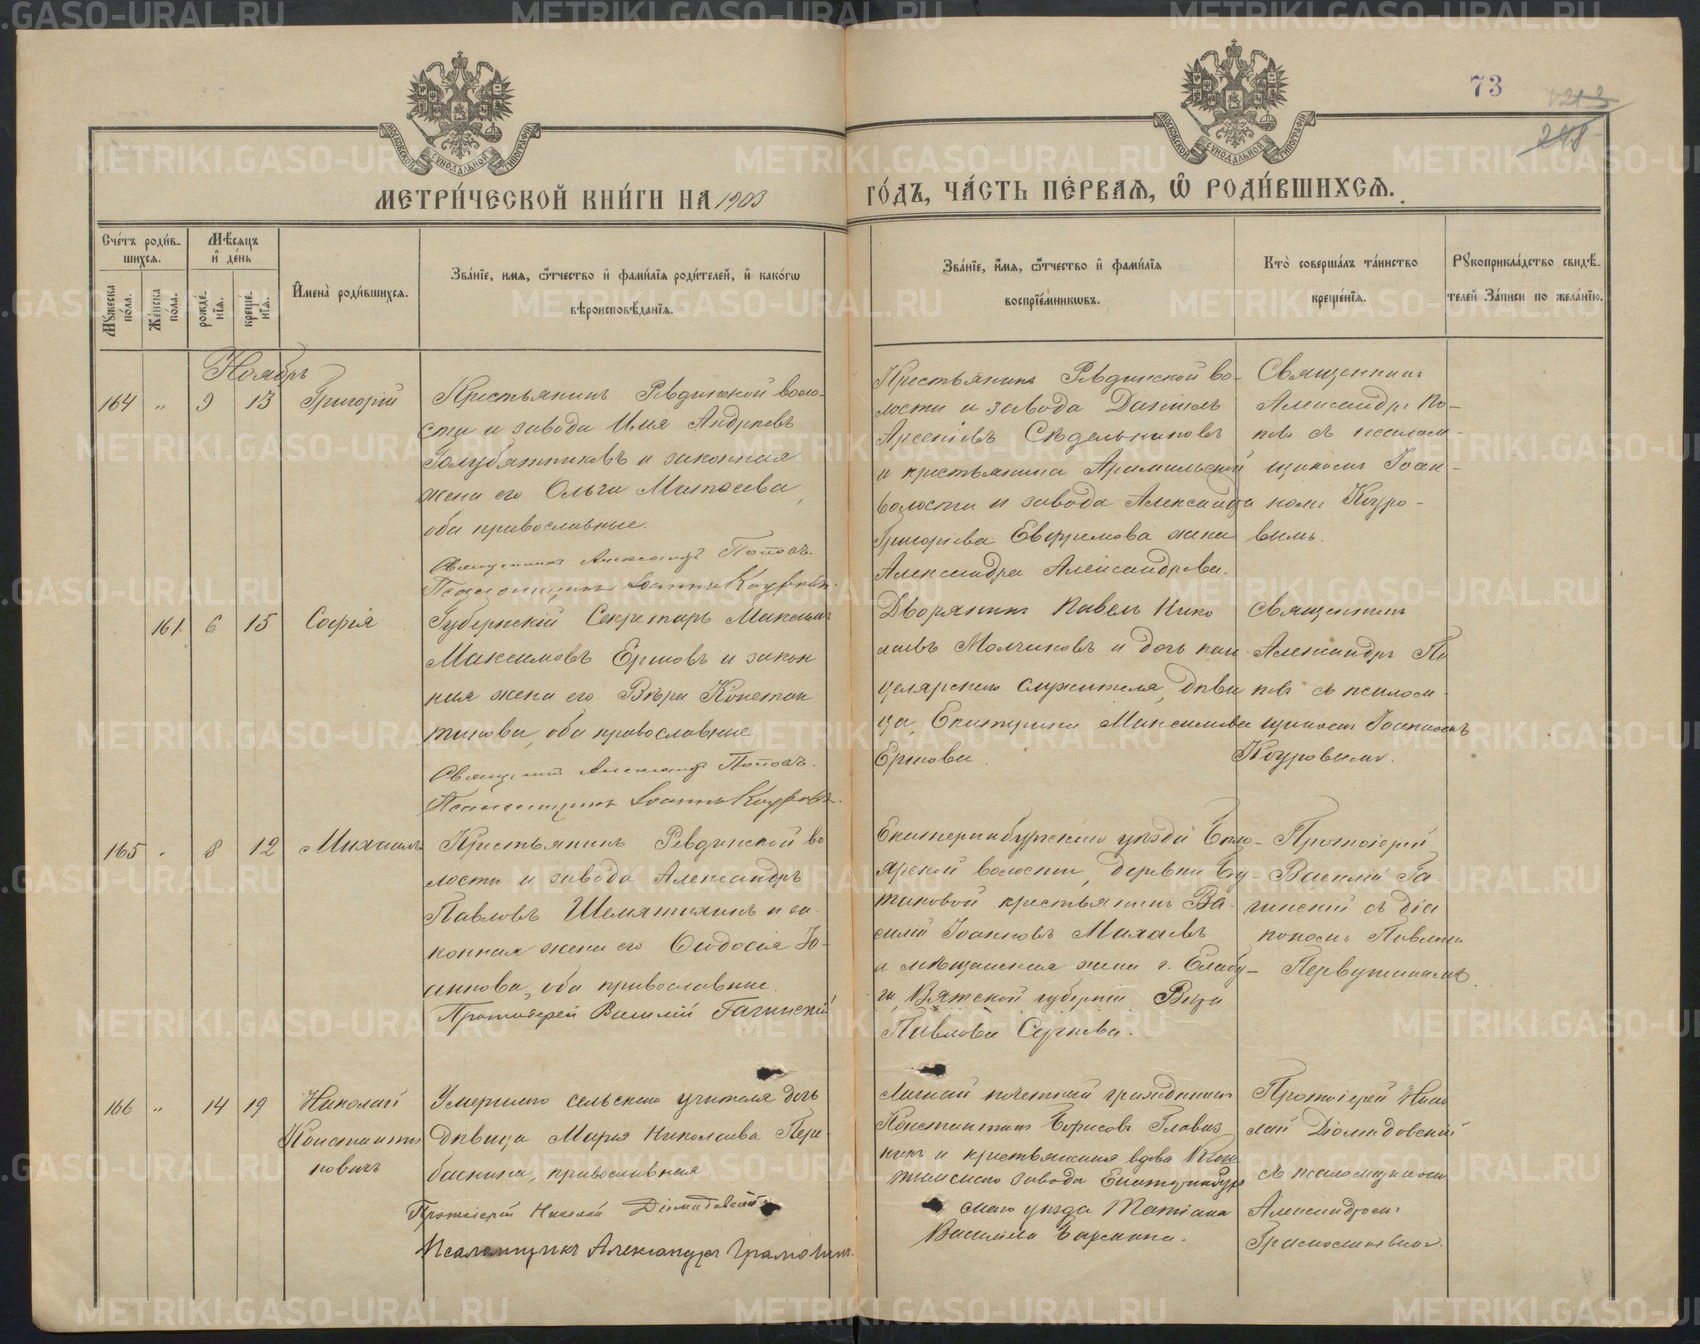 METRIKI.GASO-URAL.RU
73
МОСКОВСКОЙ СѴНОДАЛЬНОЙ ТИПОГРАФІИ
МОСКОВСКОЙ СѴНОДАЛЬНОЙ ТИПОГРАФІИ
248
МЕТРИ́ЧЕСКОЙ КНИ́ГИ НА 1903
ГО́ДЪ, ЧА́СТЬ ПЕ́РВАѦ, Ѿ РОДИ́ВШИХСѦ.
Сче́тъ роди́в-
шихсѧ.
Мꙋ́жеска по́ла.
Же́нска по́ла.
Мѣ́сѧцъ
и҆ де́нь
рожде́нїѧ.
креще́нїѧ.
И҆мена̀ роди́вшихсѧ.
Зва́нїе, имѧ, ѻ҆́тчество и҆ фами́лїѧ роди́телей, и҆ како́гѡ
вѣроисповѣ́данїѧ.
Зва́нїе, и҆́мѧ, ѻ҆́тчество и҆ фами́лїѧ
воспрїе́мникѡвъ.
Кто̀ соверша́лъ та́инство
креще́нїѧ.
Рꙋкоприкла́дство свидѣ́-
телей за́писи по жела́нїю.
Ноябрь
164 „ 9 13 Григорій
Крестьянинъ Ревдинской воло-
сти и завода Илія Андреевъ
Голубятниковъ и законная
жена его Ольга Матѳеева,
оба православные.
Священникъ Александръ Поповъ.
Псаломщикъ Іоаннъ Коуровъ.
Крестьянинъ Ревдинской во-
лости и завода Даніилъ
Арсеніевъ Сѣдельниковъ
и крестьянина Арамильской
волости и завода Александра
Григоріева Евфремова жена
Александра Александрова.
Священникъ
Александръ По-
повъ съ псалом-
щикомъ Іоан-
номъ Коуро-
вымъ.
161 6 15 Софія
Губернскій Секретарь Максимъ
Максимовъ Ершовъ и закон
ная жена его Вѣра Констан
тинова, оба православные.
Священникъ Александръ Поповъ.
Псаломщикъ Іоаннъ Коуровъ.
Дворянинъ Павелъ Нико
лаевъ Молчановъ и дочь кан
целярскаго служителя, дѣви
ца, Екатерина Максимова
Ершова.
Священникъ
Александръ По
повъ съ псалом-
щикомъ Іоанномъ
Коуровымъ.
165 „ 8 12 Михаилъ
Крестьянинъ Ревдинской во
лости и завода Александръ
Павловъ Шематихинъ и за-
конная жена его Ѳеодосія Іо-
аннова, оба православные.
Протоіерей Василій Гагинскій
Екатеринбургскаго уѣзда Бело-
ярской волости, деревни
крестьянинъ Ва-
силій Іоанновъ Михаевъ
и мѣщанская жена г. Елабу-
ги, Вятской губерніи Вѣра
Павлова Сергѣева.
Протоіерей
Василій Га-
гинскій съ діа
кономъ Павломъ
Первушинымъ.
166 „ 14 19 Николай
Константи
новичъ
Умершаго сельскаго учителя дочь
дѣвица Марія Николаева Пере-
баскина, православная.
Протоіерей Николай Діомидовскій
Псаломщикъ Александръ
Личный почетный гражданинъ
Константинъ Борисовъ
и крестьянская вдова
завода Екатеринбург
скаго уѣзда Татіана
Василіева
Протоіерей Нико
лай Діомидовскій
съ псаломщикомъ
Александромъ